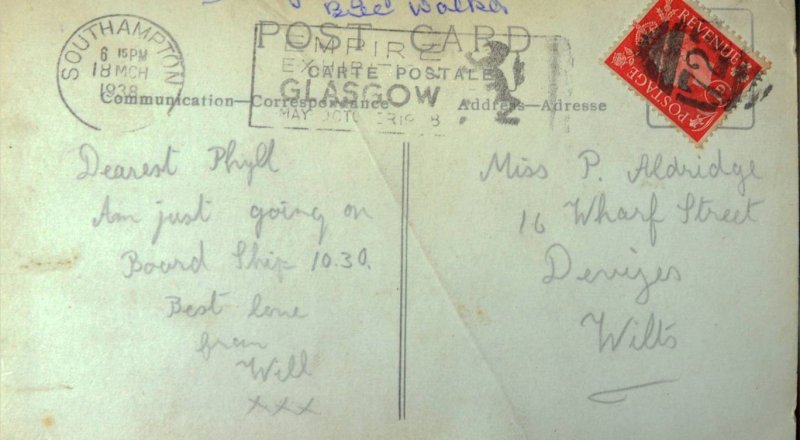 Bill Walker
POST CARD
CARTE POSTALE
SOUTHAMPTON
6 15 PM
18 MCH
1938
EMPIRE
EXHIBITION
GLASGOW
MAY OCTOBER 1938
REVENUE
POSTAGE
Communication—Correspondance
Address—Adresse
Dearest Phyll
Am just going on
Board Ship 10.30.
Best love
from
Will
xxx
Miss P. Aldridge
16 Wharf Street
Devizes
Wilts